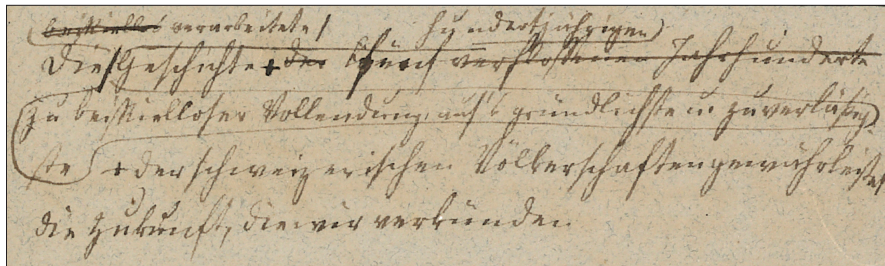 beispiellos verarbeitete/ hundertjährigen
Die Geschichte + der fünf verflossenen Jahrhunderte
zu beispielloser Vollendung, auf's gründlichste u. zuverläßig-
ste + der schweizerischen Völkerschaften gewährleistet
die Zukunft, die wir verkünden